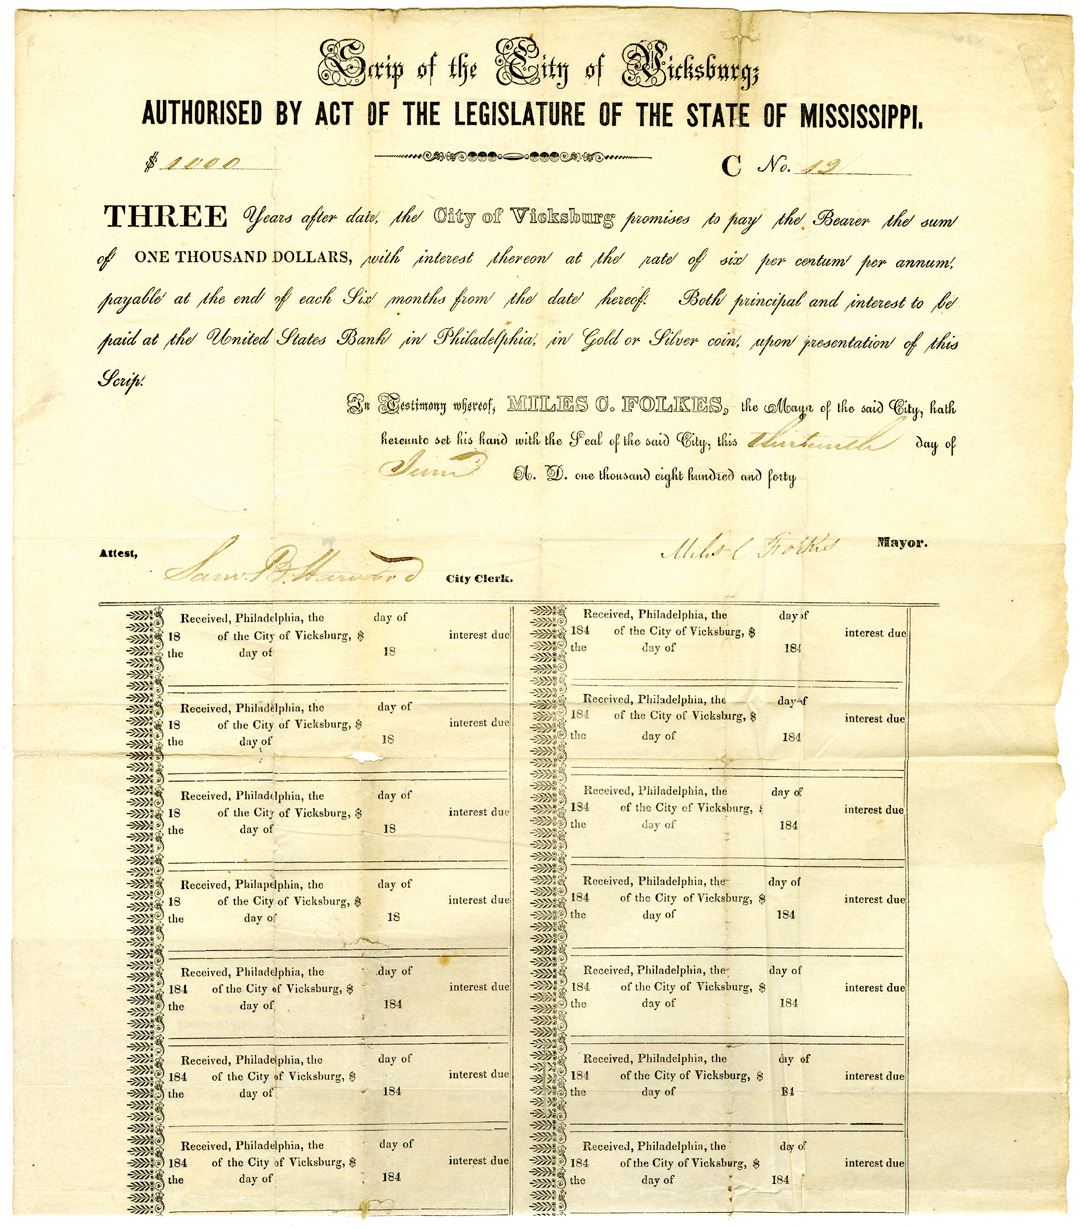 Scrip of the City of Vicksburg;
AUTHORISED BY ACT OF THE LEGISLATURE OF THE STATE OF MISSISSIPPI.
$ 1000 C No. 12
THREE Years after date, the City of Vicksburg promises to pay the Bearer the sum
of ONE THOUSAND DOLLARS, with interest thereon at the rate of six per centum per annum,
payable at the end of each Six months from the date hereof. Both principal and interest to be
paid at the United States Bank in Philadelphia, in Gold or Silver coin, upon presentation of this
Scrip.
In Testimony whereof, MILES C. FOLKES, the Mayor of the said City, hath
hereunto set his hand with the Seal of the said City, this thirteenth day of
June A. D. one thousand eight hundred and forty
Attest, Miles C Folkes Mayor.
Saml. B. Harwood City Clerk.
Received, Philadelphia, the day of
18 of the City of Vicksburg, $ interest due
the day of 18
Received, Philadelphia, the day of
18 of the City of Vicksburg, $ interest due
the day of 18
Received, Philadelphia, the day of
18 of the City of Vicksburg, $ interest due
the day of 18
Received, Philapelphia, the day of
18 of the City of Vicksburg, $ interest due
the day of 18
Received, Philadelphia, the day of
184 of the City of Vicksburg, $ interest due
the day of 184
Received, Philadelphia, the day of
184 of the City of Vicksburg, $ interest due
the day of 184
Received, Philadelphia, the day of
184 of the City of Vicksburg, $ interest due
the day of 184
Received, Philadelphia, the day of
184 of the City of Vicksburg, $ interest due
the day of 184
Received, Philadelphia, the day of
184 of the City of Vicksburg, $ interest due
the day of 184
Received, Philadelphia, the day of
184 of the City of Vicksburg, $ interest due
the day of 184
Received, Philadelphia, the day of
184 of the City of Vicksburg, $ interest due
the day of 184
Received, Philadelphia, the day of
184 of the City of Vicksburg, $ interest due
the day of 184
Received, Philadelphia, the day of
184 of the City of Vicksburg, $ interest due
the day of 184
Received, Philadelphia, the day of
184 of the City of Vicksburg, $ interest due
the day of 184